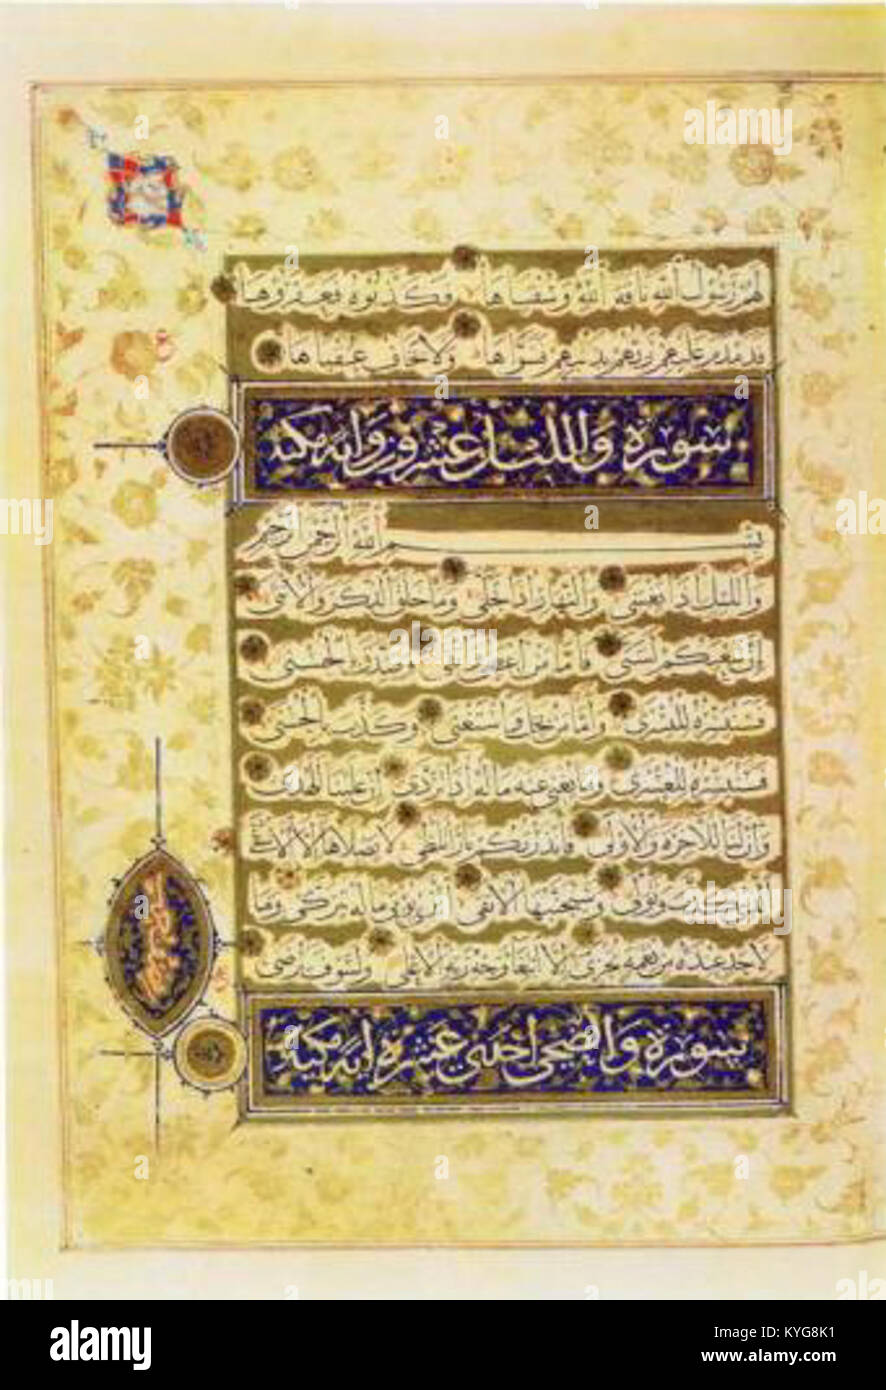 لهم رسول الله ناقة الله وسقياها فكذبوه فعقروها
فدمدم عليهم ربهم بذنبهم فسواها ولا يخاف عقباها
سورة والليل عشرون واية مكية
بسم الله الرحمن الرحيم
والليل اذا يغشى والنهار اذا تجلى وما خلق الذكر والانثى
ان سعيكم لشتى فاما من اعطى واتقى وصدق بالحسنى
فسنيسره لليسرى واما من بخل واستغنى وكذب بالحسنى
فسنيسره للعسرى وما يغنى عنه ماله اذا تردى ان علينا للهدى
وان لنا للاخرة والاولى فانذرتكم نارا تلظى لا يصلاها الا الاشقى
الذى كذب وتولى وسيجنبها الاتقى الذى يؤتى ماله يتزكى وما
لاحد عنده من نعمة تجزى الا ابتغاء وجه ربه الاعلى ولسوف يرضى
سورة والضحى احدى عشرة اية مكية
alamy
a
alamy stock photo
KYG8K1
www.alamy.com